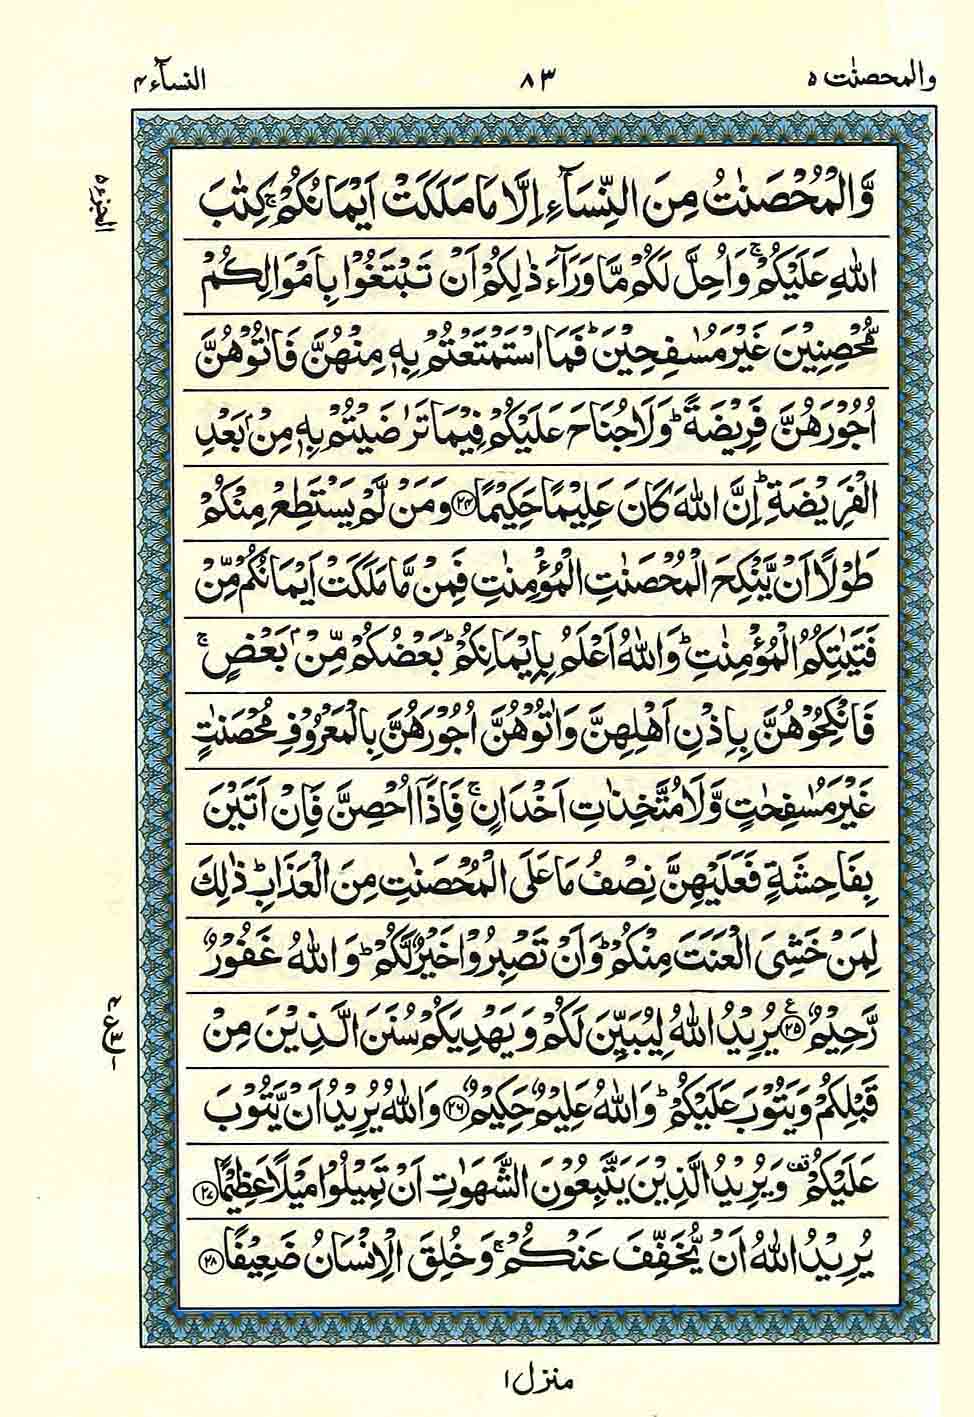 والمحصنٰت ٥
٨٣
النسآء ٤
الجزء ٥
وَّالْمُحْصَنٰتُ مِنَ النِّسَآءِ اِلَّا مَا مَلَكَتْ اَيْمَانُكُمْ ۚ كِتٰبَ
اللّٰهِ عَلَيْكُمْ ۚ وَاُحِلَّ لَكُمْ مَّا وَرَآءَ ذٰلِكُمْ اَنْ تَبْتَغُوْا بِاَمْوَالِكُمْ
مُّحْصِنِيْنَ غَيْرَ مُسٰفِحِيْنَ ؕ فَمَا اسْتَمْتَعْتُمْ بِهٖ مِنْهُنَّ فَاٰتُوْهُنَّ
اُجُوْرَهُنَّ فَرِيْضَةً ؕ وَلَا جُنَاحَ عَلَيْكُمْ فِيْمَا تَرٰضَيْتُمْ بِهٖ مِنْۢ بَعْدِ
الْفَرِيْضَةِ ؕ اِنَّ اللّٰهَ كَانَ عَلِيْمًا حَكِيْمًا ﴿٢٤﴾ وَمَنْ لَّمْ يَسْتَطِعْ مِنْكُمْ
طَوْلًا اَنْ يَّنْكِحَ الْمُحْصَنٰتِ الْمُؤْمِنٰتِ فَمِنْ مَّا مَلَكَتْ اَيْمَانُكُمْ مِّنْ
فَتَيٰتِكُمُ الْمُؤْمِنٰتِ ؕ وَاللّٰهُ اَعْلَمُ بِاِيْمَانِكُمْ ؕ بَعْضُكُمْ مِّنْۢ بَعْضٍ ۚ
فَانْكِحُوْهُنَّ بِاِذْنِ اَهْلِهِنَّ وَاٰتُوْهُنَّ اُجُوْرَهُنَّ بِالْمَعْرُوْفِ مُحْصَنٰتٍ
غَيْرَ مُسٰفِحٰتٍ وَّلَا مُتَّخِذٰتِ اَخْدَانٍ ۚ فَاِذَاۤ اُحْصِنَّ فَاِنْ اَتَيْنَ
بِفَاحِشَةٍ فَعَلَيْهِنَّ نِصْفُ مَا عَلَى الْمُحْصَنٰتِ مِنَ الْعَذَابِ ؕ ذٰلِكَ
لِمَنْ خَشِىَ الْعَنَتَ مِنْكُمْ ؕ وَاَنْ تَصْبِرُوْا خَيْرٌ لَّكُمْ ؕ وَاللّٰهُ غَفُوْرٌ
رَّحِيْمٌ ﴿٢٥﴾ يُرِيْدُ اللّٰهُ لِيُبَيِّنَ لَكُمْ وَيَهْدِيَكُمْ سُنَنَ الَّذِيْنَ مِنْ
قَبْلِكُمْ وَيَتُوْبَ عَلَيْكُمْ ؕ وَاللّٰهُ عَلِيْمٌ حَكِيْمٌ ﴿٢٦﴾ وَاللّٰهُ يُرِيْدُ اَنْ يَّتُوْبَ
عَلَيْكُمْ قف وَيُرِيْدُ الَّذِيْنَ يَتَّبِعُوْنَ الشَّهَوٰتِ اَنْ تَمِيْلُوْا مَيْلًا عَظِيْمًا ﴿٢٧﴾
يُرِيْدُ اللّٰهُ اَنْ يُّخَفِّفَ عَنْكُمْ ۚ وَخُلِقَ الْاِنْسَانُ ضَعِيْفًا ﴿٢٨﴾
منزل ١